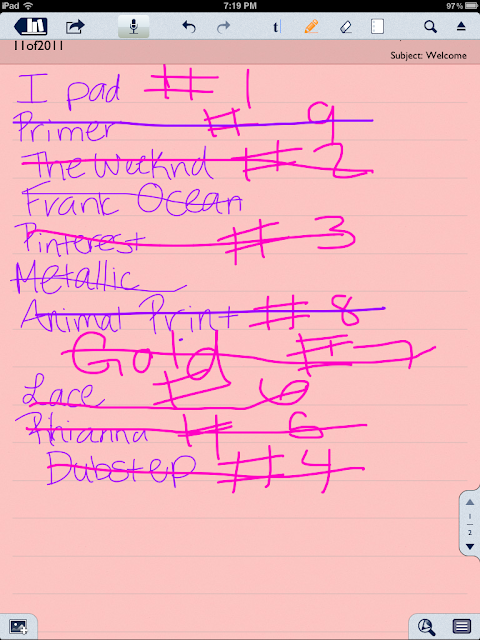 iPad 7:19 PM 97%
11of2011
Subject: Welcome
I pad # 1
Primer # 9
The Weeknd # 2
Frank Ocean
Pinterest # 3
Metallic
Animal Print # 8
Gold # 7
Lace # 6
Rhianna # 6
Dubstep # 4
1
2